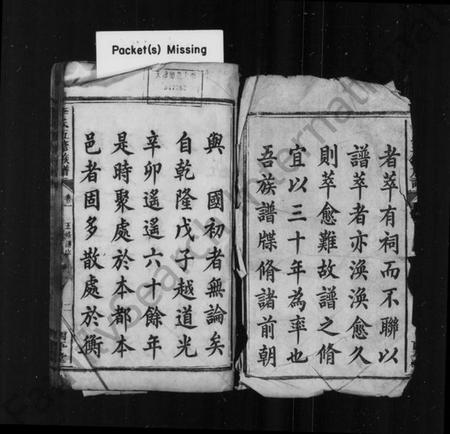 Packet(s) Missing
者萃有祠而不聯以
譜萃者亦渙渙愈久
則萃愈難故譜之脩
宜以三十年為率也
吾族譜牒脩諸前朝
與國初者無論矣
自乾隆戊子越道光
辛卯遙遙六十餘年
是時聚處於本都本
邑者固多散處於衡
五修族譜